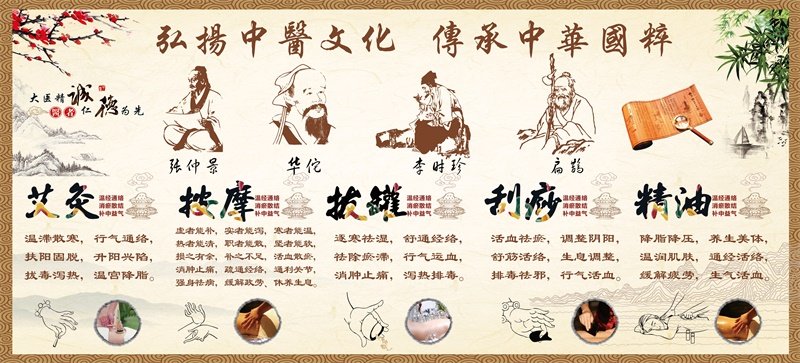 弘揚中醫文化 傳承中華國粹
大医精诚
医者仁德为先
张仲景
华佗
李时珍
扁鹊
艾灸
温经通络
消瘀散结
补中益气
温滞散寒，行气通络，
扶阳固脱，升阳兴陷，
拔毒泻热，温宫降脂。
按摩
温经通络
消瘀散结
补中益气
虚者能补，实者能泻，寒者能温，
热者能清，职者能散，坚者能软，
损之有余，补之不足，活血散瘀，
消肿止痛，疏通经络，通利关节，
强身祛病，缓解疲劳，休养生息。
拔罐
温经通络
消瘀散结
补中益气
逐寒祛湿，舒通经络，
祛除瘀滞，行气运血，
消肿止痛，泻热排毒。
刮痧
温经通络
消瘀散结
补中益气
活血祛瘀，调整阴阳，
舒筋活络，生息调整，
排毒祛邪，行气活血。
精油
温经通络
消瘀散结
补中益气
降脂降压，养生美体，
温润肌肤，通经活络，
缓解疲劳，生气活血。